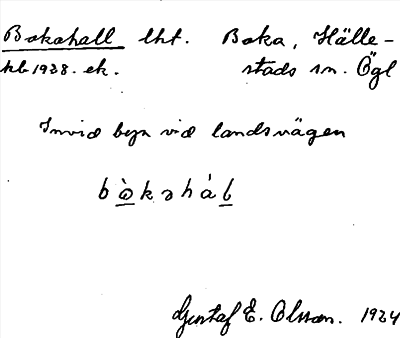 Bokahall lht. Boka, Hälle-
kb 1928. ek. stads sn. Ögl
Invid byn vid landsvägen
bò̲kəháḻ
Gustaf E. Olsson. 1924